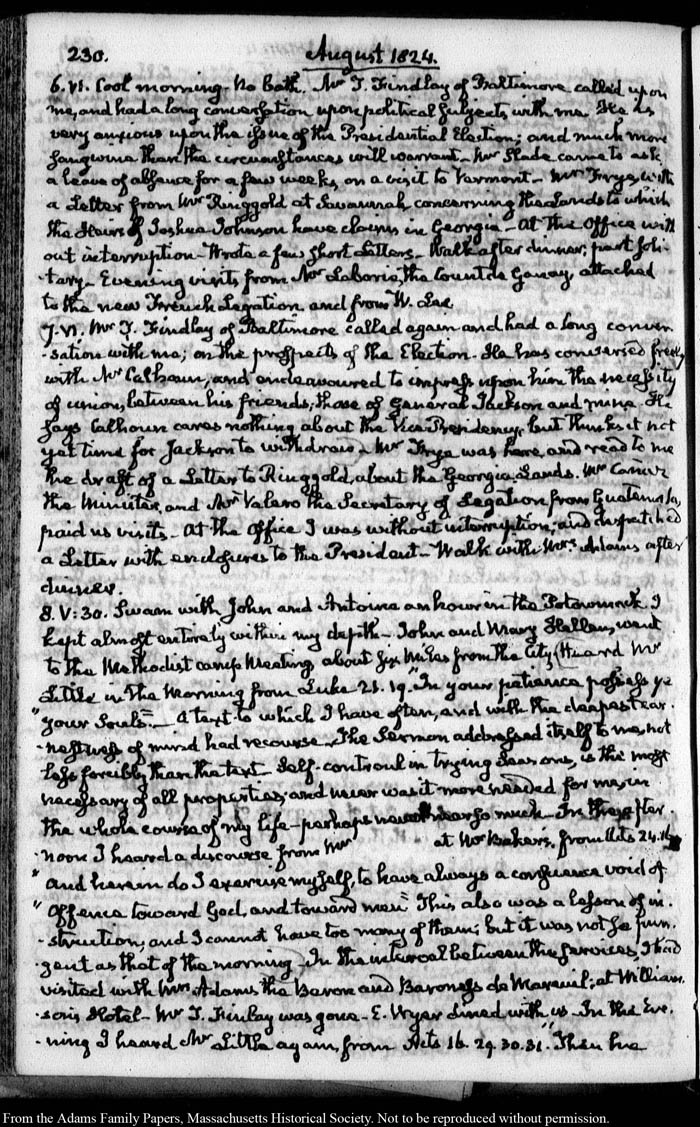 230. August 1824.
6. VI. Cool morning. No bath. Mr. J. Findlay of Baltimore called upon
me, and had a long conversation upon political subjects with me. He is
very anxious upon the issue of the Presidential Election; and much more
sanguine than the circumstances will warrant. Mr Slade came to ask
a leave of absence for a few weeks, on a visit to Vermont. Mr Frye, with
a Letter from Mr Ringgold at Savannah, concerning the Lands to which
the Heirs of Joshua Johnson have claims in Georgia. At the Office with
out interruption. Wrote a few short Letters. Walk after dinner; part soli
-tary. Evening visits from Mr Laborie, the Count de Ganay attached
to the new French Legation, and from W. Lee
7. VI. Mr J. Findlay of Baltimore called again and had a long conver
-sation with me; on the prospects of the Election. He has conversed freely
with Mr Calhoun, and endeavoured to impress upon him the necessity
of union, between his friends, those of General Jackson and mine. He
says Calhoun cares nothing about the Vice Presidency, but thinks it not
yet time for Jackson to withdraw. Mr Frye was here, and read to me
the draft of a Letter to Ringgold, about the Georgia Lands. Mr Canaz
the Minister, and Mr Valero the Secretary of Legation from Guatemala,
paid us visits. At the Office I was without interruption; and despatched
a Letter with enclosures to the President. Walk with Mrs Adams after
dinner.
8. V:30. Swam with John and Antoine an hour in the Potowmack. I
kept almost entirely within my depth. John and Mary Hellen, went
to the Methodist camp Meeting about six Miles from the City. Heard Mr
Little in the Morning from Luke 21. 19. "In your patience possess ye
"your Souls." A text to which I have often, and with the deepest ear
-nestness of mind had recourse. The Sermon addressed itself to me, not
less forcibly than the text. Self-controul in trying Seasons, is the most
necessary of all properties; and never was it more needed for me, in
the whole course of my life. perhaps never so much. In the after
-noon I heard a discourse from Mr at Mr Baker's, from Acts 24. 16
"And herein do I exercise myself, to have always a conscience void of
"Offence toward God, and toward men." This also was a lesson of in
-struction, and I cannot have too many of them; but it was not so pun
-gent as that of the morning. In the interval between the services, I had
visited with Mrs Adams the Baron and Baroness de Mareuil, at William
-son's Hotel. Mr J. Finlay was gone. E. Wyer dined with us. In the Eve
-ning I heard Mr Little again, from Acts 16. 29. 30. 31. "Then he
From the Adams Family Papers, Massachusetts Historical Society. Not to be reproduced without permission.